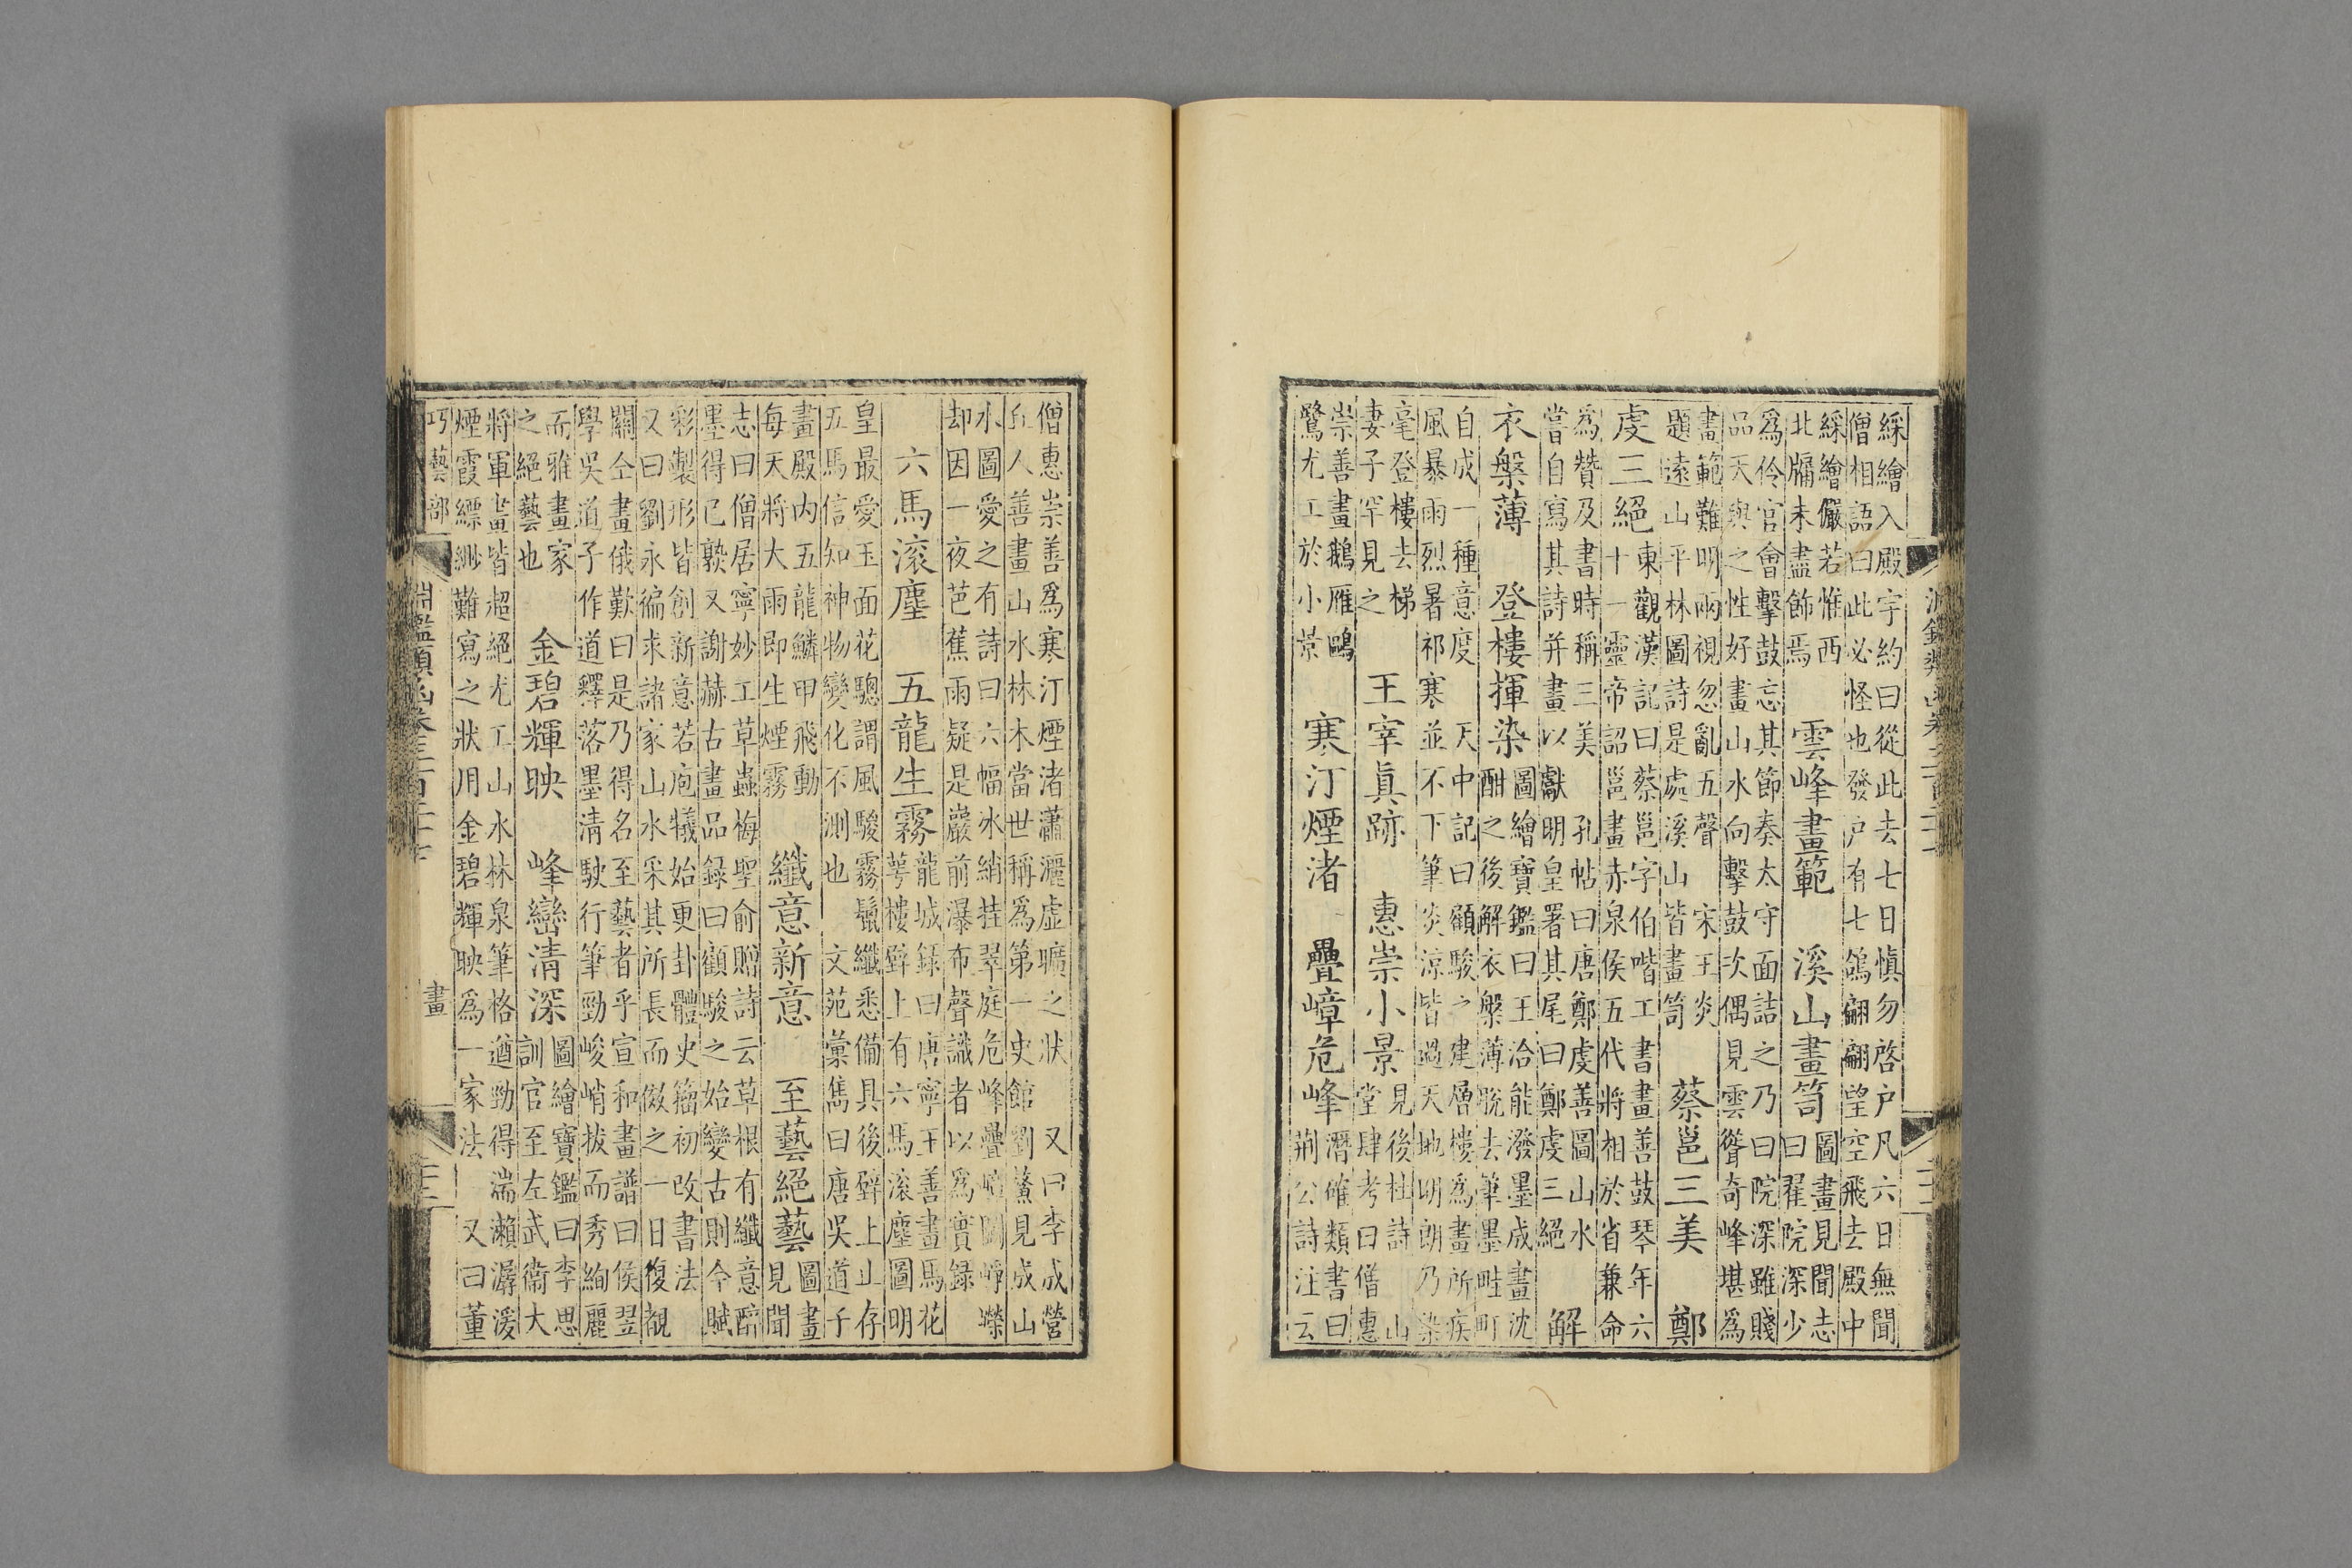 綵繪入殿宇約曰從此去七日慎勿啓户凡六日無聞
僧相語曰此必怪也發户有七鴿翩翩望空飛去殿中
綵繪儼若惟西
北牖未盡飾焉
雲峰畫範　溪山畫笥
圖畫見聞志
曰翟院深少
為伶官會擊鼓忘其節奏太守面詰之乃曰院深雖賤
品天與之性好畫山水向擊鼓次偶見雲聳奇峰堪為
畫範難明兩視忽亂五聲　宋王炎
題遠山平林圖詩是處溪山皆畫笥
蔡邕三美　鄭
虔三絕
東觀漢記曰蔡邕字伯喈工書畫善鼓琴年六
十一靈帝詔邕畫赤泉侯五代將相於省兼命
為贊及書時稱三美　孔帖曰唐鄭虔善圖山水
嘗自寫其詩并畫以獻明皇署其尾曰鄭虔三絕
解
衣槃薄　登樓揮染
圖繪寶鑑曰王洽能潑墨成畫沈
酣之後解衣槃薄脫去筆墨畦町
自成一種意度　天中記曰顧駿之建層樓為畫所疾
風暴雨烈暑祁寒並不下筆炎涼皆過天地明朗乃染
毫登樓去梯
妻子罕見之
王宰真跡　惠崇小景
見後杜詩　山
堂肆考曰僧惠
崇善畫鵝雁鷗
鷺尤工於小景
寒汀煙渚　疊嶂危峰
潛確類書曰
荆公詩注云
僧惠崇善為寒汀煙渚瀟灑虛曠之狀　又曰李成營
丘人善畫山水林木當世稱為第一史館劉鰲見成山
水圖愛之有詩曰六幅氷綃挂翠庭危峰疊嶂鬬崢嶸
却因一夜芭蕉雨疑是巖前瀑布聲識者以為實録
六馬滚塵　五龍生霧
龍城録曰唐寧王善畫馬花
萼樓壁上有六馬滚塵圖明
皇最愛玉面花驄謂風駿霧鬣纖悉備具後壁上止存
五馬信知神物變化不測也　文苑彙雋曰唐吳道子
畫殿内五龍鱗甲飛動
每天將大雨即生煙霧
纖意新意　至藝絕藝
圖畫
見聞
志曰僧居寧妙工草蟲梅聖俞贈詩云草根有纖意醉
墨得已熟又謝赫古畫品録曰顧駿之始變古則今賦
彩製形皆創新意若庖犧始更卦體史籀初改書法
又曰劉永徧求諸家山水采其所長而倣之一日復覩
關仝畫俄歎曰是乃得名至藝者乎宣和畫譜曰侯翌
學吳道子作道釋落墨清駛行筆勁峻峭拔而秀絢麗
而雅畫家
之絕藝也
金碧輝映　峰巒清深
圖繪寶鑑曰李思
訓官至左武衞大
將軍畫皆超絕尤工山水林泉筆格遒勁得湍瀨潺湲
煙霞縹緲難寫之狀用金碧輝映為一家法　又曰董
巧藝部
淵鑑類函卷三百二十七
畫